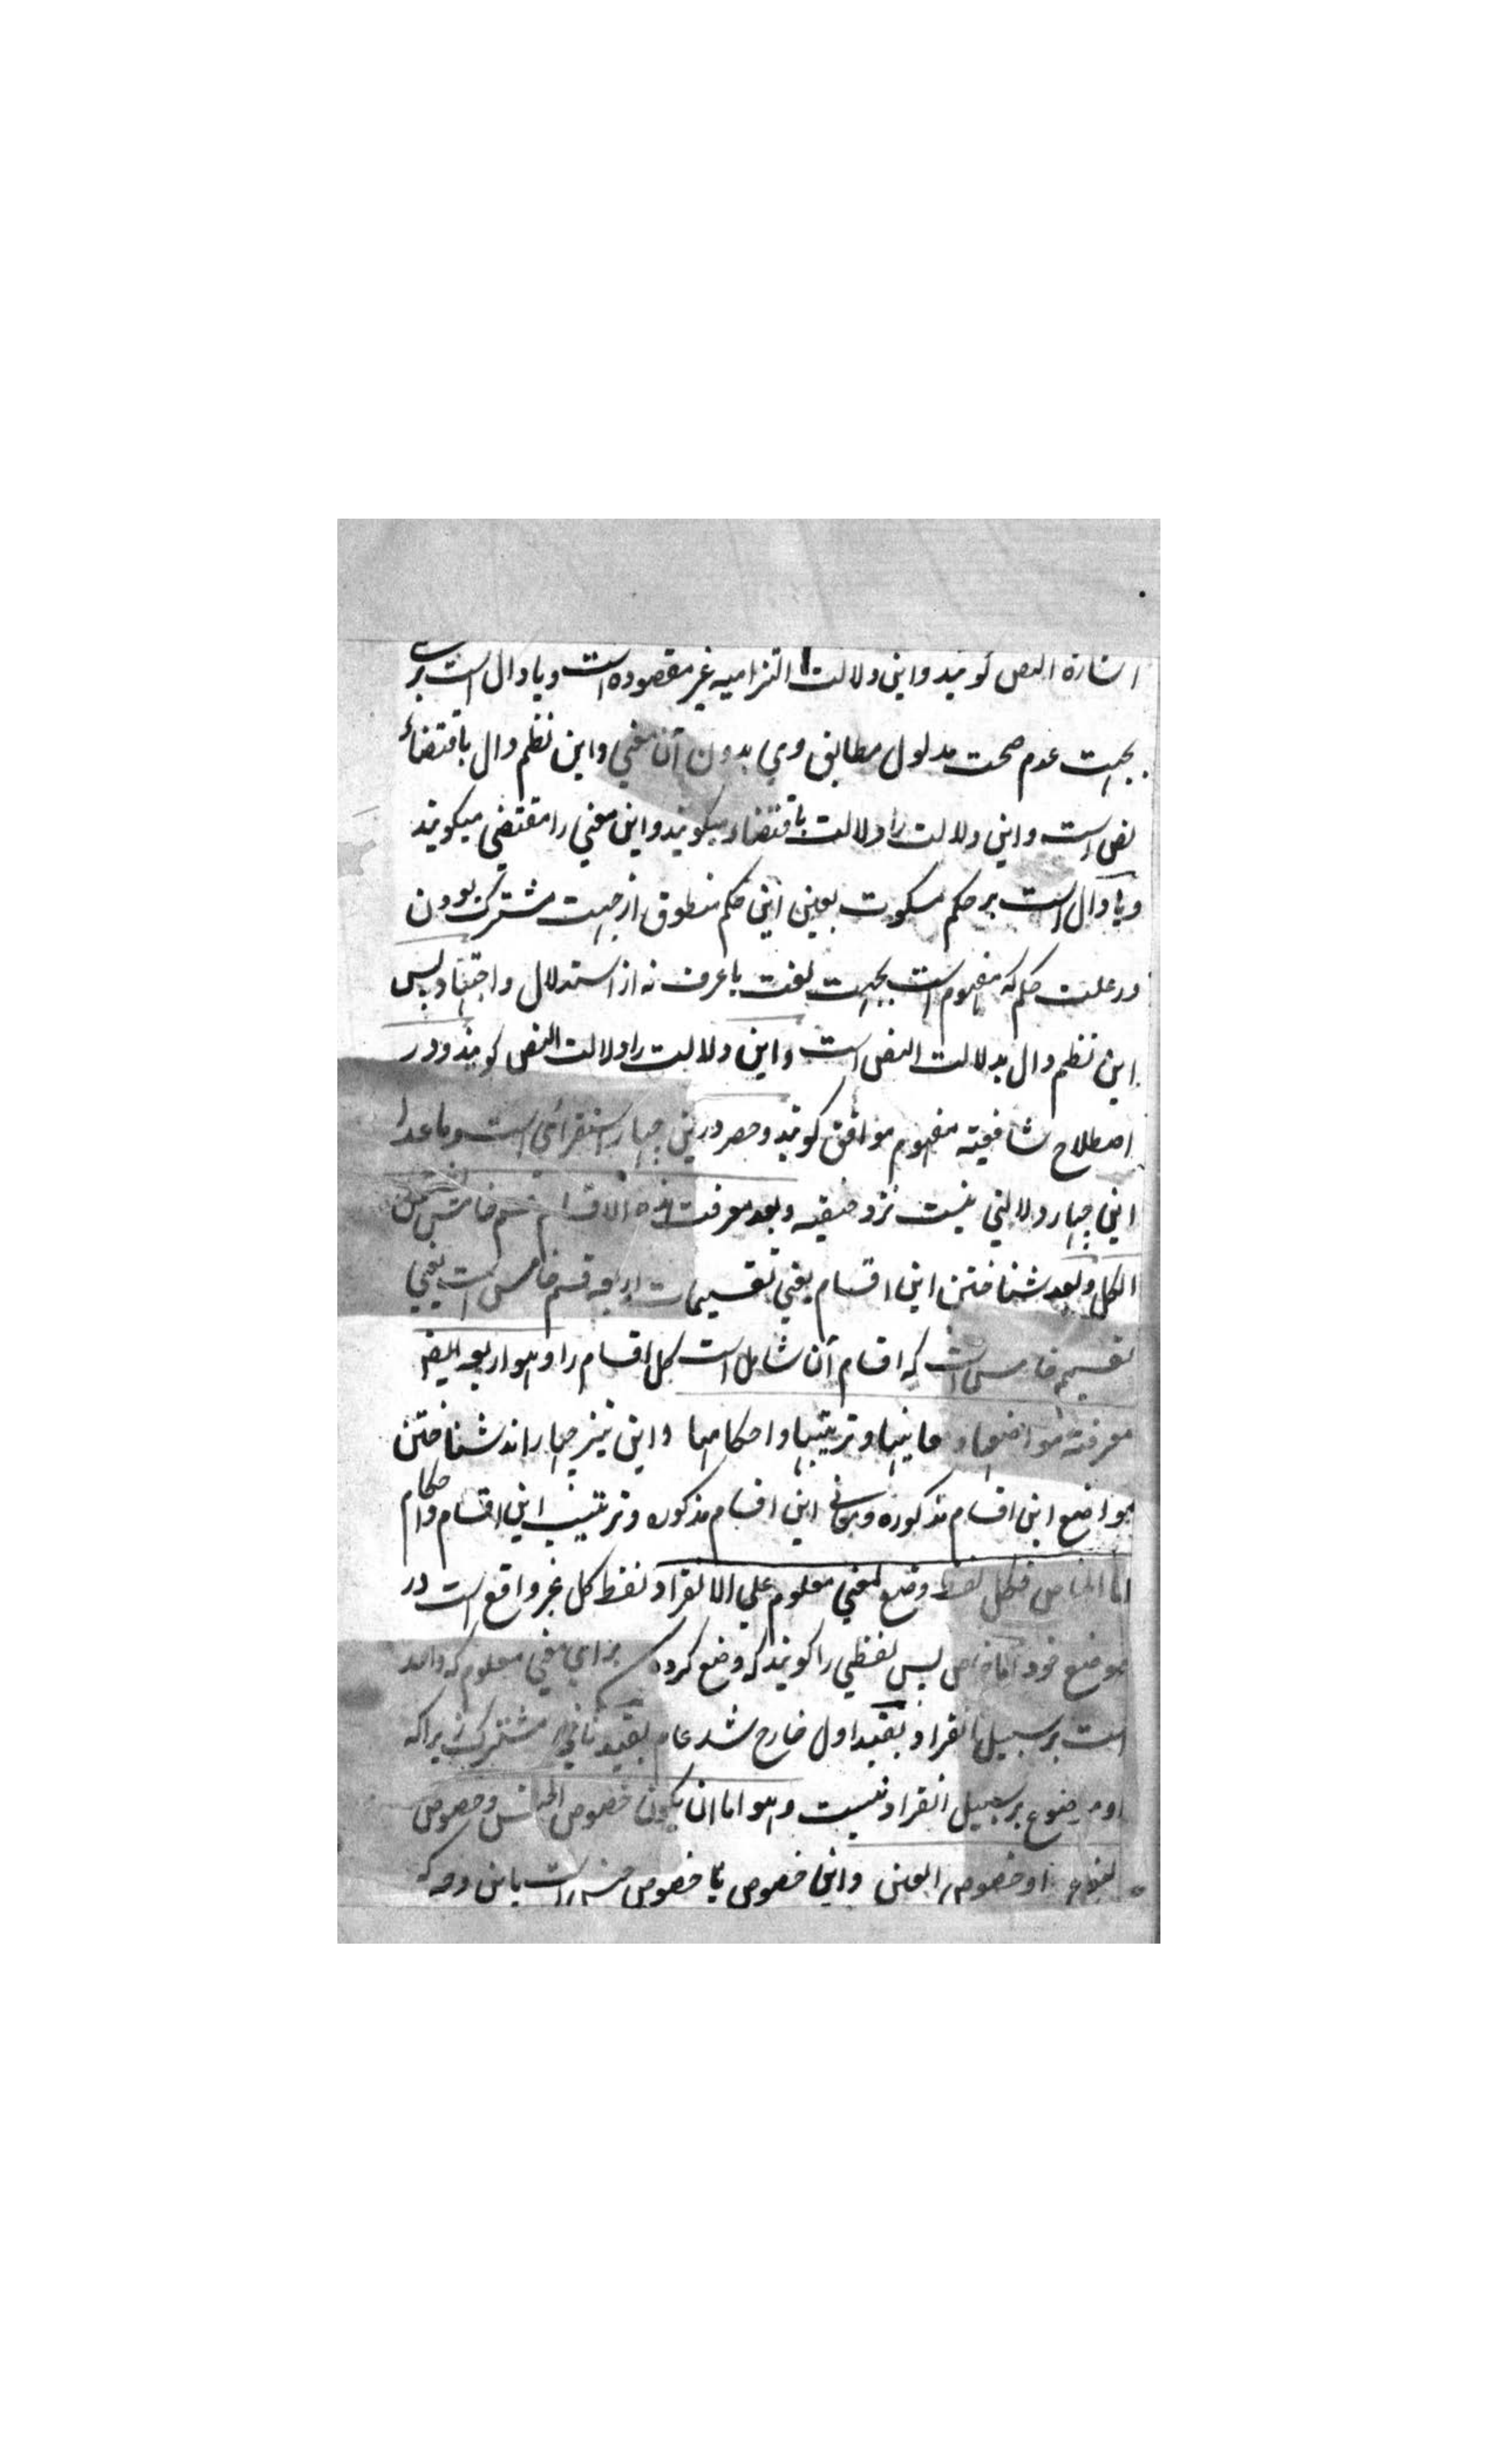 اشارة النص گویند و این دلالت التزامیه غیر مقصوده است و یا دال است بر
بجهت عدم صحت مدلول مطابقی وی بدون آن معنی و این نظم دال باقتضاء
نص است و این دلالت را دلالت باقتضاء میگویند و این معنی را مقتضی میگویند
و یا دال است بر حکم مسکوت بعین این حکم منطوق از جهت مشترک بودن
در علت حکم که مفهوم است بجهت لغت یا عرف نه از استدلال و اجتهاد پس
این نظم دال بدلالت النص است و این دلالت را دلالت النص گویند و در
اصطلاح شافعیه مفهوم موافق گویند و حصر درین چهار استقرائی است و ماعدا
این چهار دلالتی نیست نزد حنفیه و بعد معرفت هذه الاقسام قسم خامس یشمل
الکل و بعد شناختن این اقسام یعنی تقسیمات اربعه قسم خامس است یعنی
تقسیم خامس است که اقسام آن شامل است کل اقسام را و هو اربعة ایضا
معرفة مواضعها و معانیها و ترتیبها و احکامها و این نیز چهار اند شناختن
مواضع این اقسام مذکوره و معانی این اقسام مذکوره و ترتیب این اقسام و احکام
اما الخاص فکل لفظ وضع لمعنی معلوم علی الانفراد لفظ کل غیر واقع است در
موضع خود اما خاص پس لفظی را گویند که وضع کرده برای معنی معلوم که دالد
است بر سبیل انفراد بقید اول خارج شد عام بقید ثانی مشترک زیرا که
او موضوع بر سبیل انفراد نیست و هو اما ان یکون خصوص الجنس و خصوص
النوع او خصوص العین و این خصوص یا خصوص جنس است باین وجه که